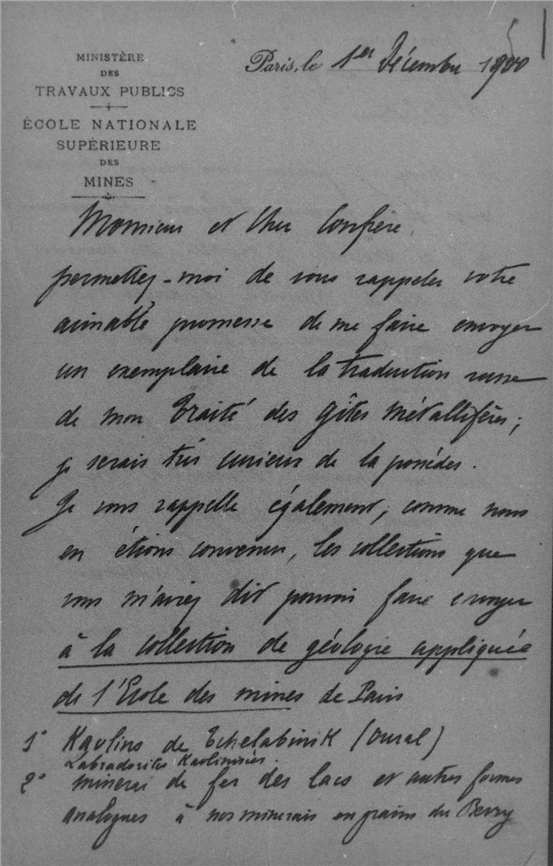 MINISTÈRE
DES
TRAVAUX PUBLICS
ÉCOLE NATIONALE
SUPÉRIEURE
DES
MINES
Paris, le 1er Décembre
Monsieur et Cher Confrère
permettez-moi de vous rappeler votre
aimable promesse de me faire envoyer
un exemplaire de la traduction russe
de mon Traité des Gîtes métallifères;
je serais très curieux de la posséder.
Je vous rappelle également, comme nous
en étions convenus, les collections que
vous m'aviez dit pouvoir faire envoyer
à la collection de géologie appliquée
de l'Ecole des mines de Paris
1° Kaolins de Tchelabinsk (Oural)
Labradorites Kaolinisées
2° minerai de fer des lacs et autres formes
analogues à nos minerais en grains du Berry